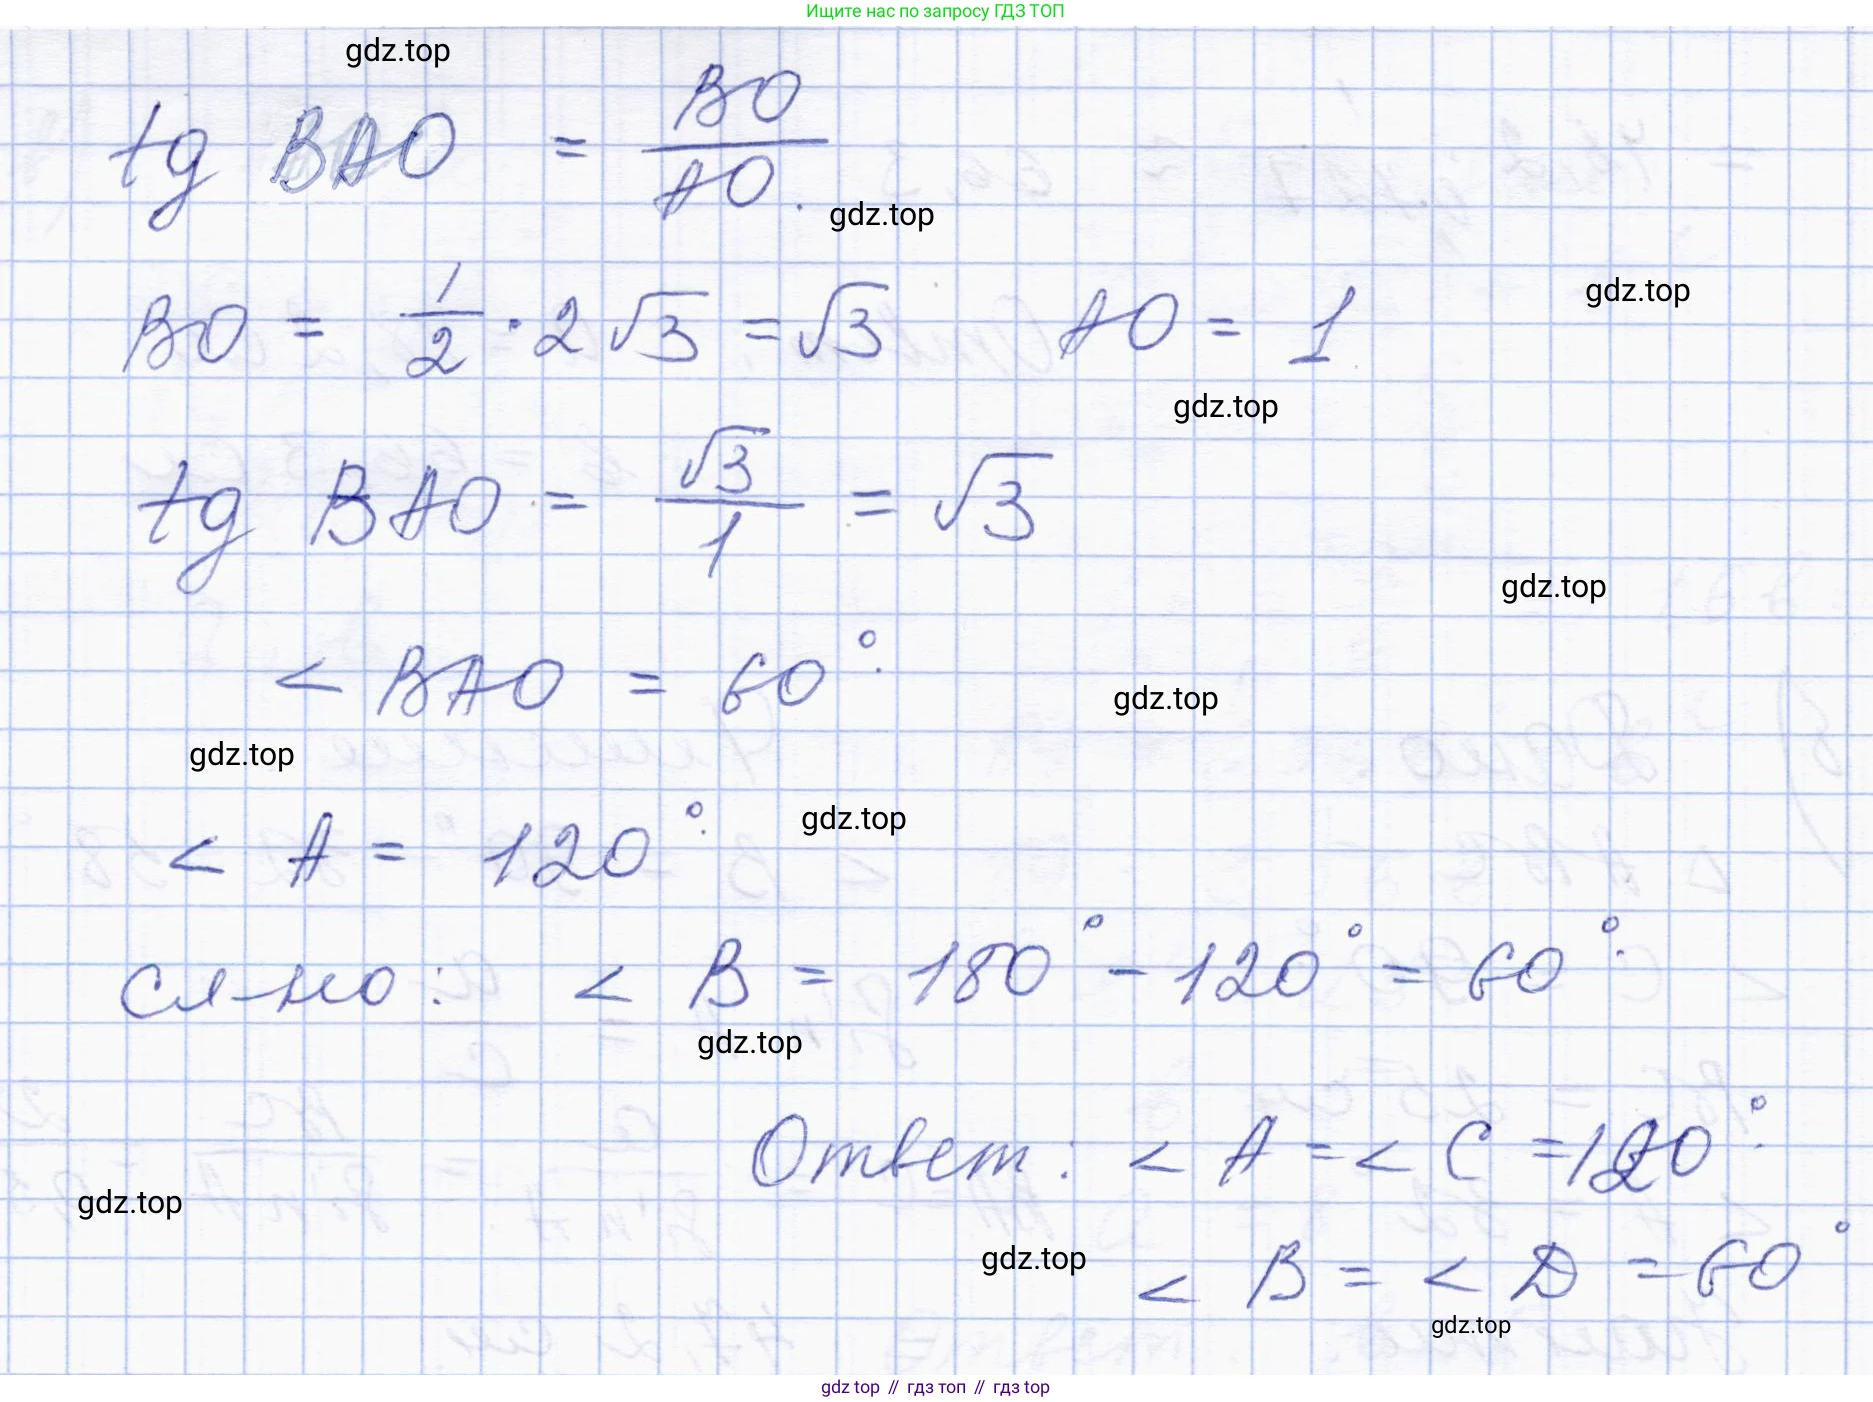 Ищите нас по запросу ГДЗ ТОП
gdz.top
tg BAO = BO/AO.
gdz.top
gdz.top
BO = 1/2 · 2√3 = √3 AO = 1
gdz.top
tg BAO = √3/1 = √3
gdz.top
< BAO = 60°.
gdz.top
gdz.top
gdz.top
< A = 120°.
сл-но: < B = 180° - 120° = 60°.
gdz.top
Ответ: < A = < C = 120°.
gdz.top
gdz.top
< B = < D = 60°
gdz.top
gdz top // гдз топ // гдз top